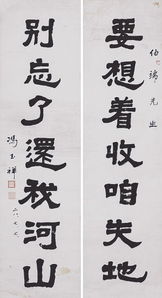 要想着收咱失地
伯瑞先生
别忘了還我河山
馮玉祥